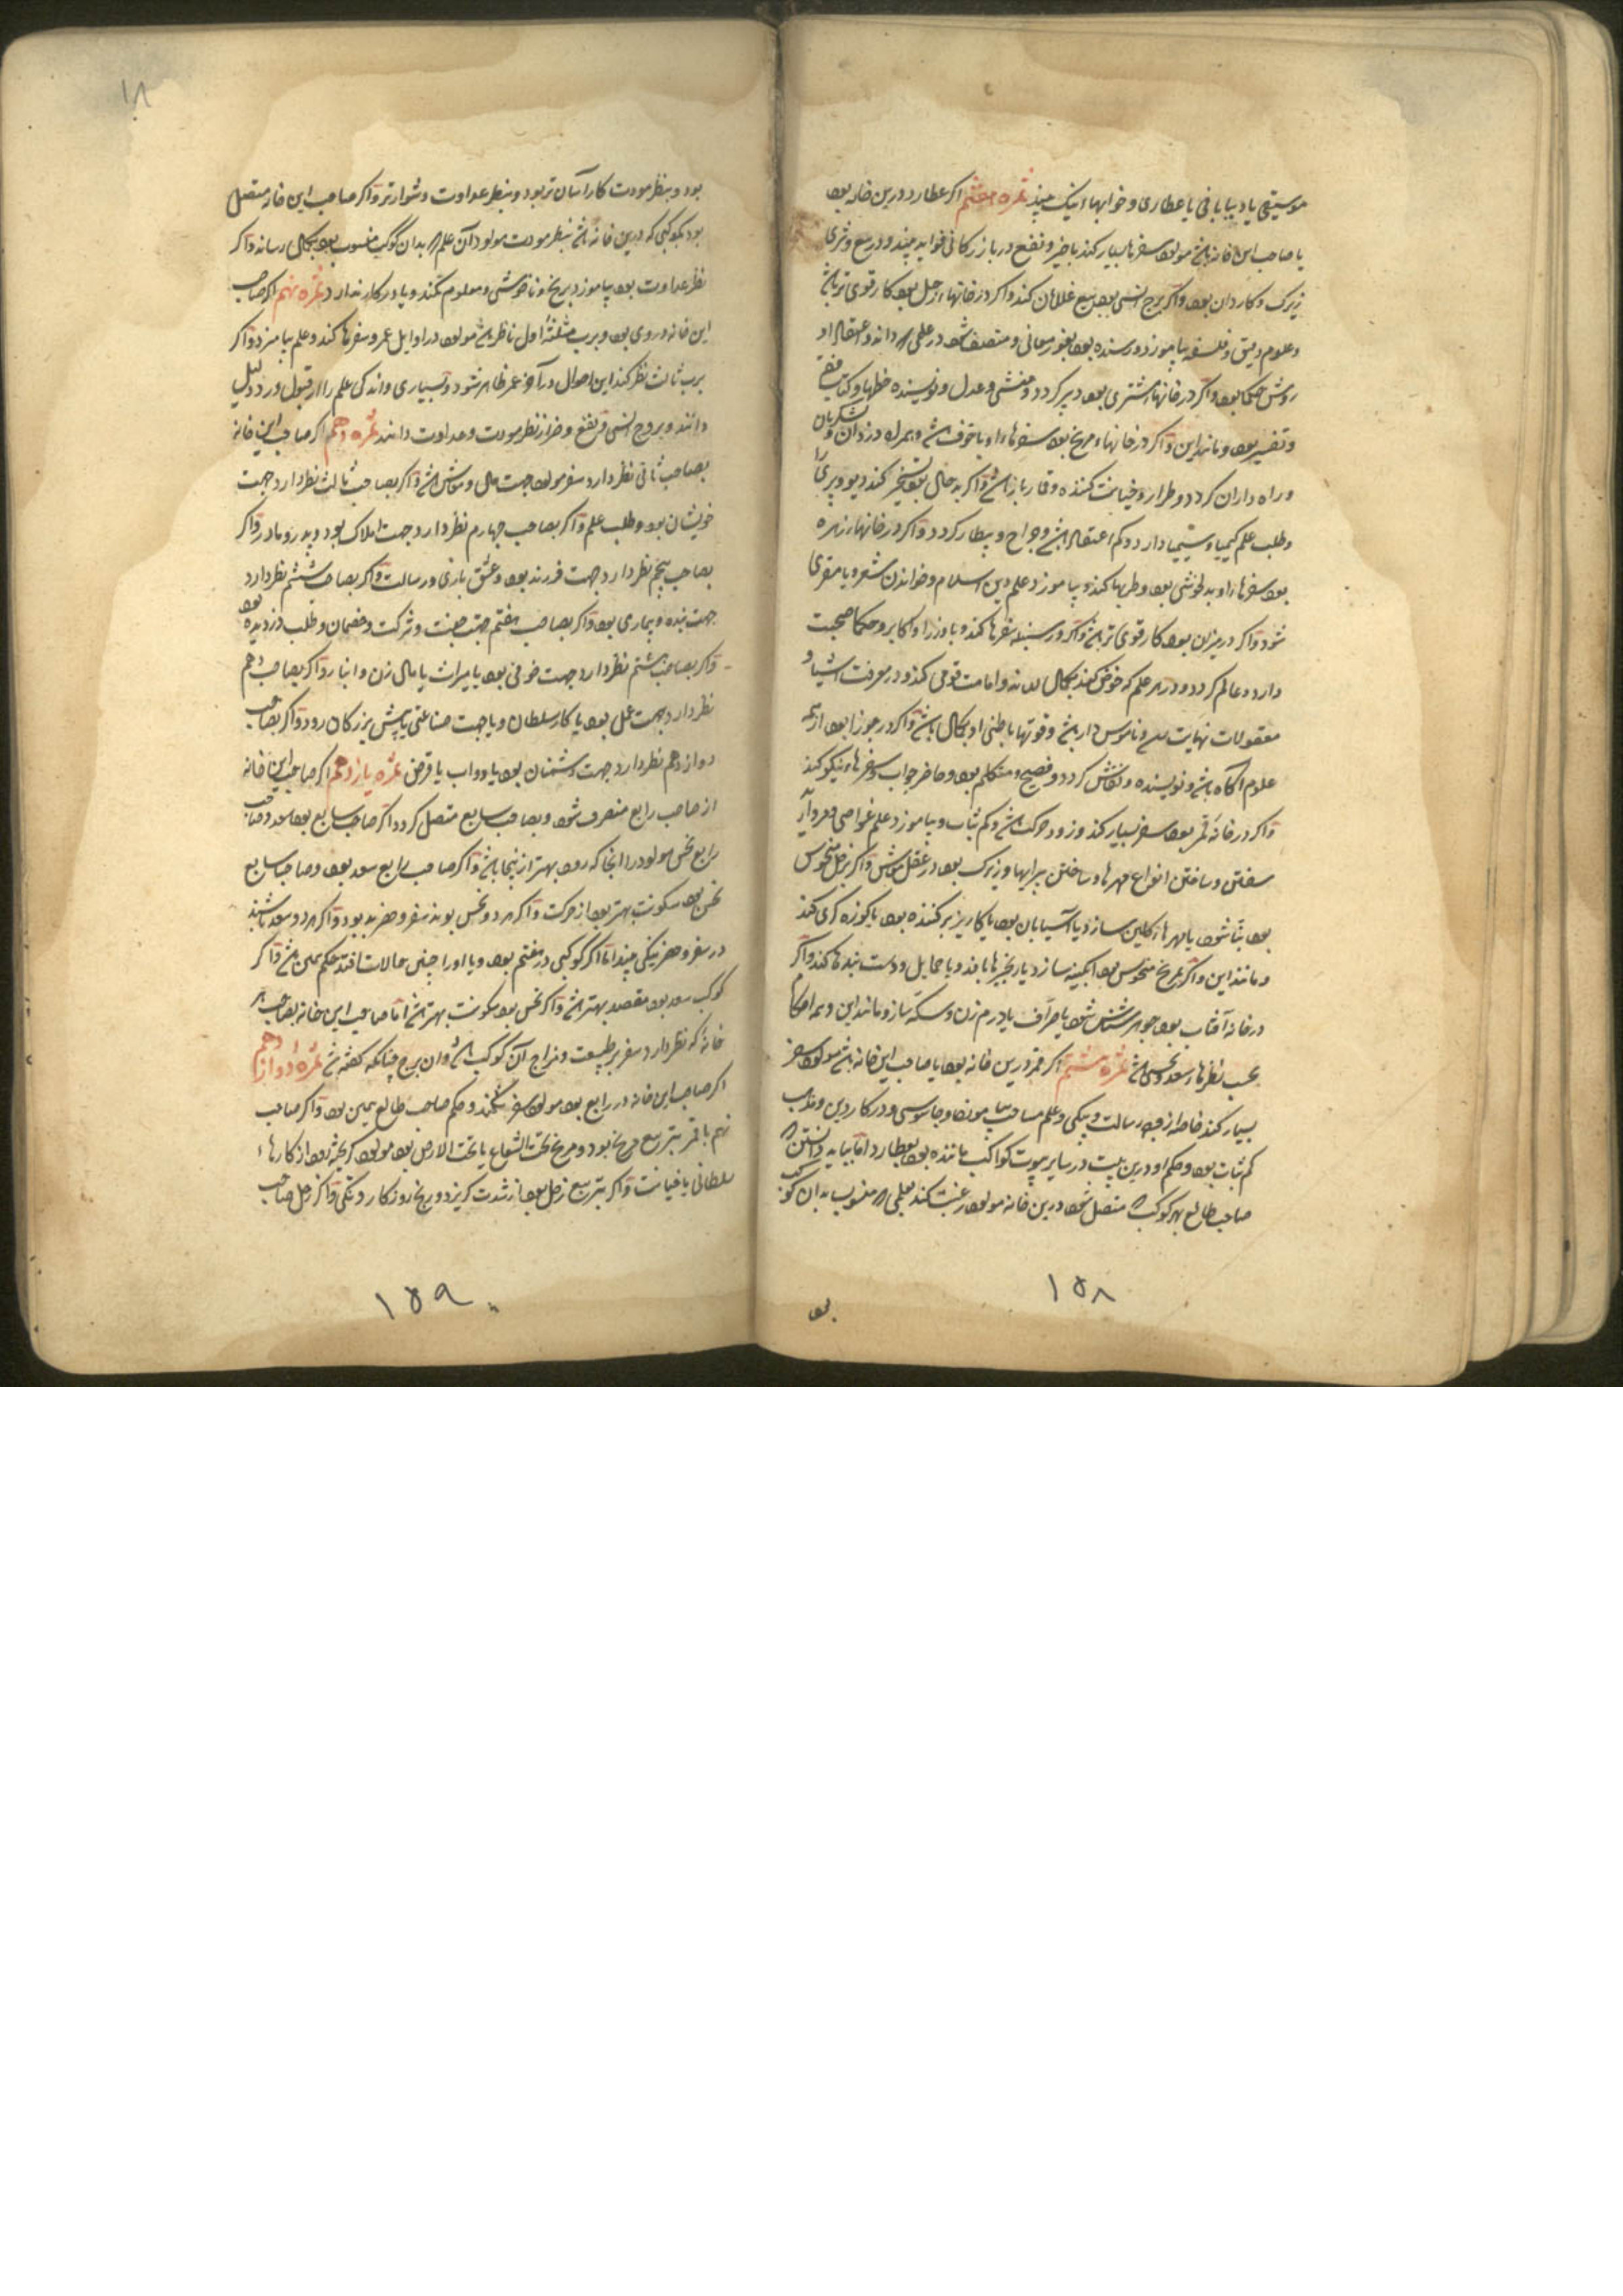 موسیقی یا دیبابافی یا عطاری و خوابهاء نیک بیند ثمره هفتم اکر عطارد درین خانه بود
یا صاحب این خانه باشد مولود سفرها بسیار کند با خیر و نفع در بازرکانی فواید بیند و در بیع و شری
زیرک و کاردان بود و اکر برج انسی بود بیع غلامان کند و اکر در خانهاء زحل بود کار قوی تر باشد
و علوم دقیق و فلسفه بیاموزد و رسنده بود بغور معانی و متصف شود در علمی داند و اعتقاد او
روش حکما بود و اکر در خانهاء مشتری بود دبیر کردد و منشی و عدل و نویسنده خطها و کتاب فقه
و تفسیر بود و مانند این و اکر در خانهاء مریخ بود سفرهاء او با خوف باشد و همراه دزدان و لشکریان
و راه داران کردد و طرار و خیانت کننده و قمارباز باشد و اکر بدحال بود تسخیر کند دیو و پری را
و طلب علم کیمیا و سیمیا دارد و کم اعتقاد باشد و جراح و بیطار کردد و اکر در خانهاء زهره
بود سفرهاء او بدلخوشی بود و طربها کند و بیاموزد علم دین اسلام و خواندن شعر و یا مقری
شود و اکر در میزان بود کار قوی تر باشد و اکر در سنبله سفرها کند و با وزرا و اکابر و حکما صحبت
دارد و عالم کردد و در هر علم که خوض کند بکمال داند و امامت قومی کند و در معرفت اشیا و
معقولات نهایت و ناموس دار باشد و قوتها باطنی او بکمال باشد و اکر در جوزا بود از همه
علوم آکاه باشد و نویسنده و نقاش کردد و فصیح و متکلم بود و حاضر جواب و سفرهاء نیکو کند
و اکر در خانه قمر بود سفر بسیار کند و زود حرکت باشد و کم ثبات و بیاموزد علم غواصی و مروارید
سفتن و ساختن انواع مهرها و ساختن پیرایها و زیرک بود در عقل معاش و اکر بزحل منحوس
بود بنا شود یا مهرهاء کلین سازد یا آسیابان بود یا کاریز بر کننده بود یا کوزه کری کند
و مانند این و اکر بمریخ منحوس بود ابکینه سازد یا زنجیرها بافد و یا حمایل و دست بندها کند و اکر
در خانه آفتاب بود جوهر شناس شود یا صراف یا درم زن و سکه ساز و مانند این و همه احکام
بحسب نظرهاء سعد و نحس باشد ثمره هشتم اکر قمر درین خانه بود یا صاحب این خانه باشد مولود سفر
بسیار کند خاصه از جهة رسالت و پیکی و علم مساحت بیاموزد و جاسوسی و در کار دین و مذهب
کم ثبات بود و حکم او درین بیت در سایر بیوت کواکب ماننده بود بعطارد اما بباید دانستن
صاحب طالع بهر کوکب متصل شود درین خانه مولود رغبت کند بعلمی منسوب بدان کوکب
بود
۱۵۸
۱۸
بود و بنظر مودت کار آسان تر بود و بنظر عداوت دشوارتر و اکر صاحب این خانه متصل
بود بکوکبی که درین خانه باشد بنظر مودت مولود آن علم بدان کوکب منسوب بود بکمال رساند و اکر
نظر عداوت بود بیاموزد برنج و ناخوشی و معلوم نکند و یا در کار ندارد ثمره نهم اکر صاحب
این خانه در وی بود و برب مثلثهٔ اول ناظر باشد مولود در اوایل عمر سفرها کند و علم بیاموزد و اکر
برب ثالث نظر کند این احوال در آخر عمر ظاهر شود و بسیاری و اندکی علم را از قبول و رد دلیل
دانند و بروج انسی و نفع و ضرر از نظر مودت و عداوت دانند ثمره دهم اکر صاحب این خانه
بصاحب ثانی نظر دارد سفر مولود جهت مال و معاش باشد و اکر بصاحب ثالث نظر دارد جهت
خویشان بود و طلب علم و اکر بصاحب چهارم نظر دارد جهت املاک بود و پدر و مادر و اکر
بصاحب پنجم نظر دارد جهت فرزند بود و عشق بازی و رسالت و اکر بصاحب ششم نظر دارد
جهت بنده و بیماری بود و اکر بصاحب هفتم جهت جفت و شرکت و خصمان و طلب دزدیده بود
و اکر بصاحب هشتم نظر دارد جهت خوفی بود یا میراث یا مال زن و انباز و اکر بصاحب دهم
نظر دارد جهت عمل بود یا کار سلطان و یا جهت صناعتی یا پیش بزرکان رود و اکر بصاحب
دوازدهم نظر دارد جهت دشمنان بود یا دواب یا قرض ثمره یازدهم اکر صاحب این خانه
از صاحب رابع منصرف شود و بصاحب سابع متصل کردد اکر صاحب سابع بود سعد و صاحب
رابع نحس مولود را انجا که رود بهتر از اینجا باشد و اکر صاحب رابع سعد بود و صاحب سابع
نحس بود سکونت بهتر بود از حرکت و اکر هر دو نحس بوند سفر و حضر بد بود و اکر هر دو سعد باشند
در سفر و حضر نیکی بیند اما اکر کوکبی در هفتم بود و یا او را چنین حالات افتد حکم همین باشد و اکر
کوکب سعد بود مقصد بهتر باشد و اکر نحس بود سکونت بهتر باشد اما صاحب این خانه بصاحب هر
خانهٔ که نظر دارد سفر بر طبیعت و مزاج آن کوکب باشد و ان برج چنانکه کفته شد ثمره دوازدهم
اکر صاحب این خانه در رابع بود مولود سفر نکند و حکم صاحب طالع همین بود و اکر صاحب
نهم با قمر بتربیع مریخ بود و مریخ تحت الشعاع یا تحت الارض بود مولود کریخته رود از کارهاء
سلطانی یا خیانت و اکر بتربیع زحل بود از شدت کریزد و رنج روزکار و تنکی و اکر زحل صاحب
۱۵۹